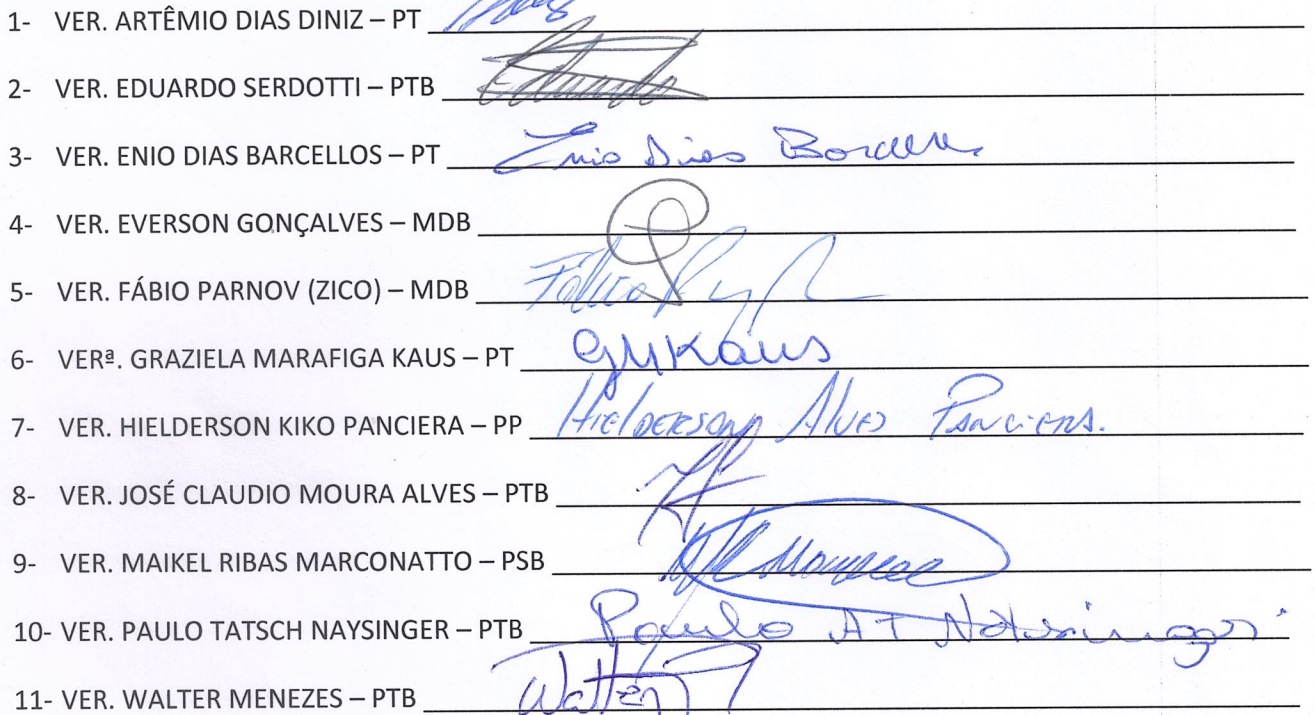 1- VER. ARTÊMIO DIAS DINIZ – PT
2- VER. EDUARDO SERDOTTI – PTB Eduardo
3- VER. ENIO DIAS BARCELLOS – PT Enio Dias
4- VER. EVERSON GONÇALVES – MDB
5- VER. FÁBIO PARNOV (ZICO) – MDB
6- VERª. GRAZIELA MARAFIGA KAUS – PT GMKaus
7- VER. HIELDERSON KIKO PANCIERA – PP Hielderson Alves Panciera.
8- VER. JOSÉ CLAUDIO MOURA ALVES – PTB
9- VER. MAIKEL RIBAS MARCONATTO – PSB
10- VER. PAULO TATSCH NAYSINGER – PTB Paulo A T
11- VER. WALTER MENEZES – PTB Walter